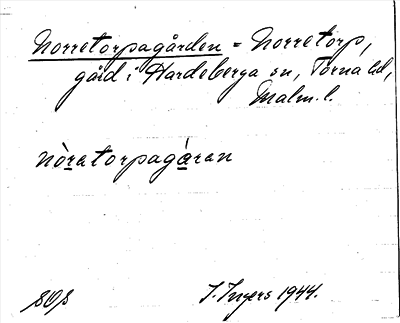 Norretorpagården = Norretorp,
gård i Hardeberga sn, Torna hd,
Malm. l.
nòratorpagáran
I. Ingers 1944.